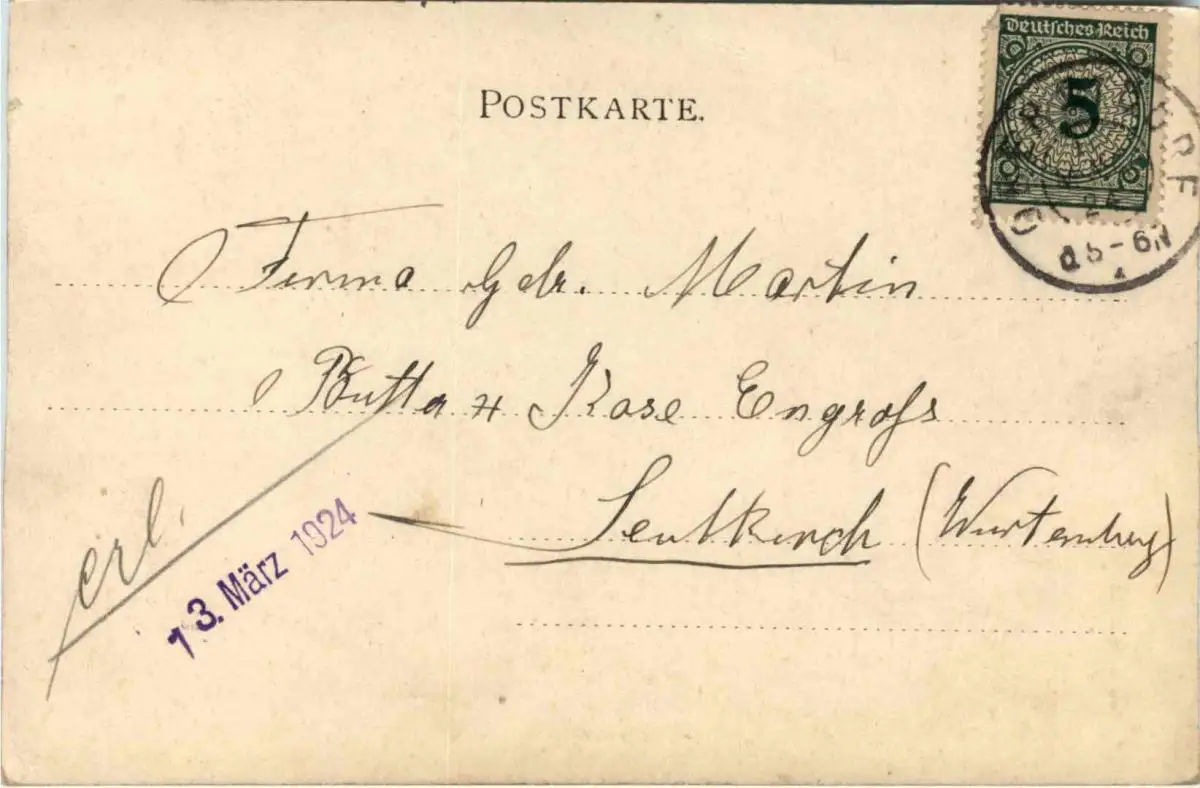 POSTKARTE.
Deutsches Reich
5
5-6N
Firma Gdr. Martin
Butter & Käse Engross
Leutkirch (Württemberg)
erl.
13. März 1924